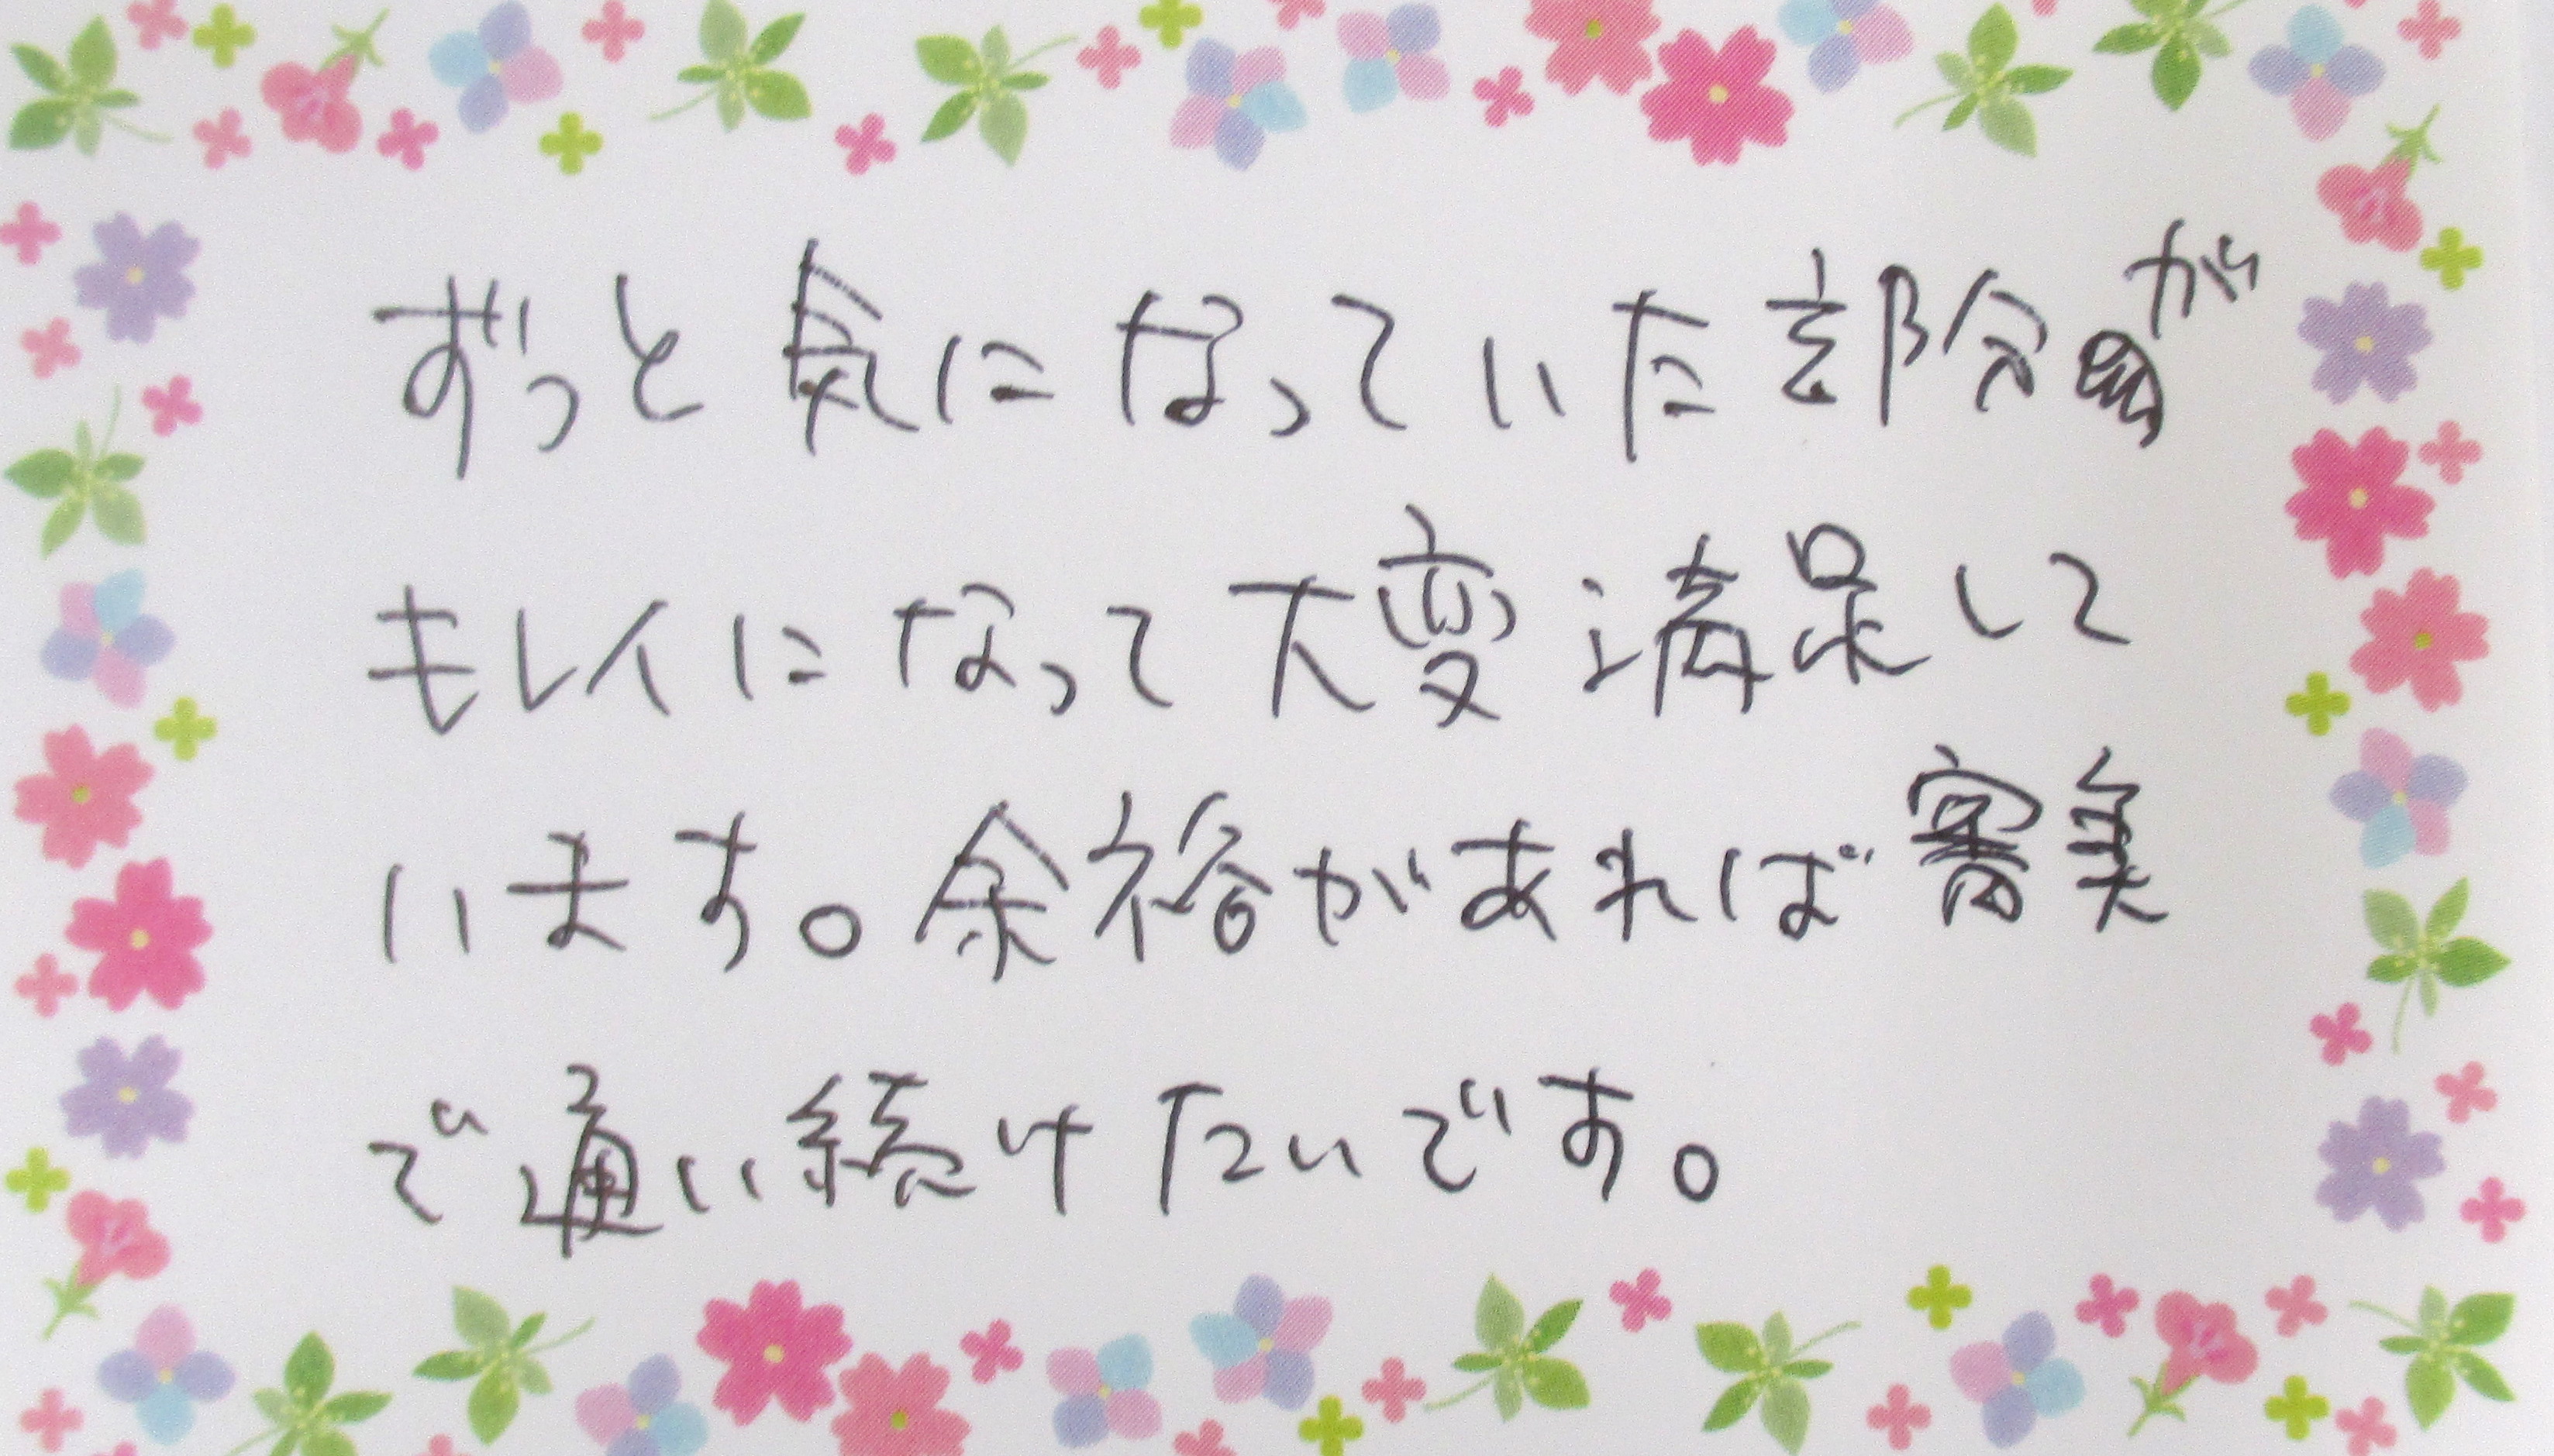 ずっと気になっていた部分が
キレイになって大変満足して
います。余裕があれば審美
で通い続けたいです。